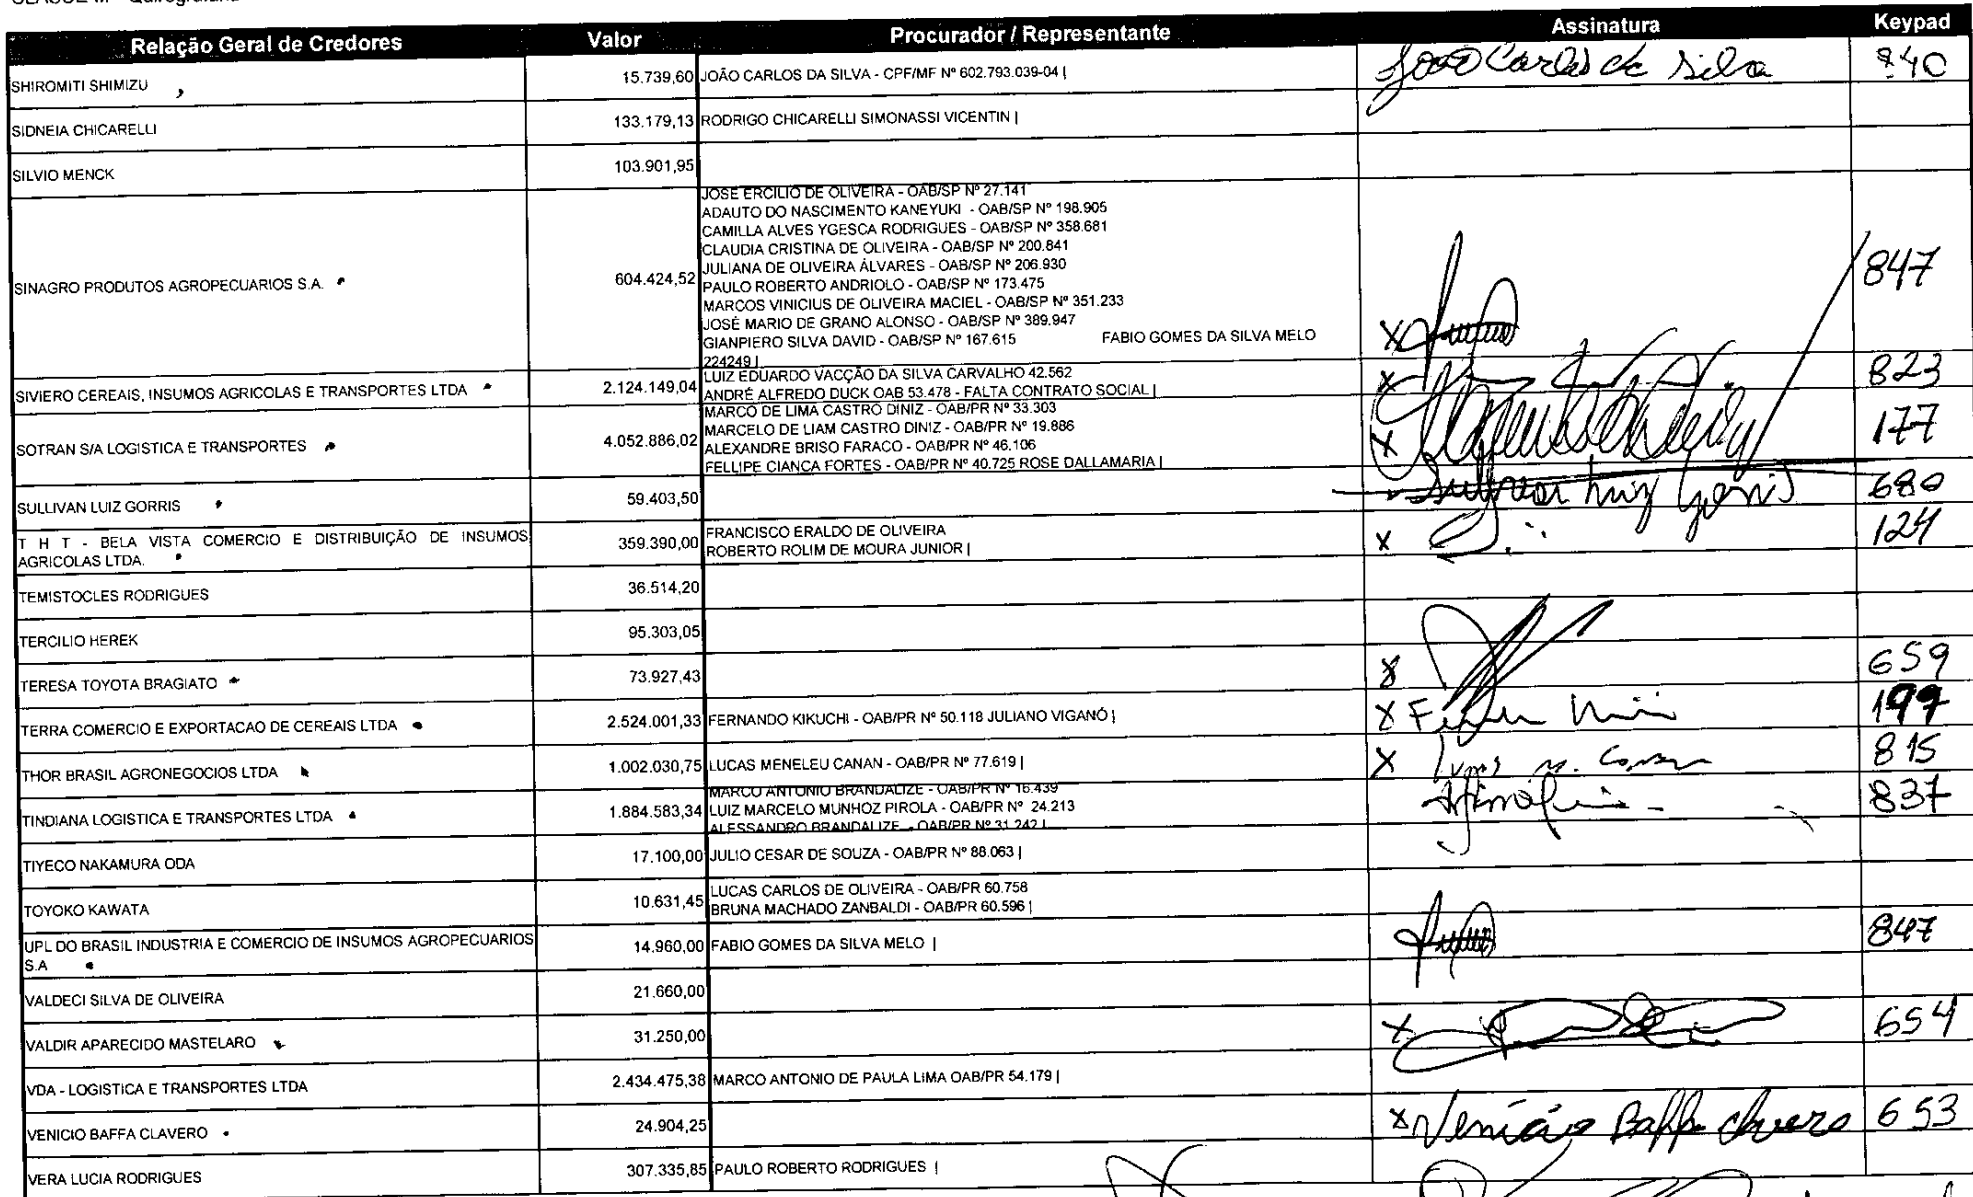 Relação Geral de Credores Valor Procurador / Representante Assinatura Keypad
SHIROMITI SHIMIZU 15.739,60 JOÃO CARLOS DA SILVA - CPF/MF Nº 602.793.039-04 | João Carlos da Silva 840
SIDNEIA CHICARELLI 133.179,13 RODRIGO CHICARELLI SIMONASSI VICENTIN |
SILVIO MENCK 103.901,95
JOSE ERCILIO DE OLIVEIRA - OAB/SP Nº 27.141
ADAUTO DO NASCIMENTO KANEYUKI - OAB/SP Nº 198.905
CAMILLA ALVES YGESCA RODRIGUES - OAB/SP Nº 358.681
CLAUDIA CRISTINA DE OLIVEIRA - OAB/SP Nº 200.841
JULIANA DE OLIVEIRA ÁLVARES - OAB/SP Nº 206.930
SINAGRO PRODUTOS AGROPECUARIOS S.A. 604.424,52 PAULO ROBERTO ANDRIOLO - OAB/SP Nº 173.475 847
MARCOS VINICIUS DE OLIVEIRA MACIEL - OAB/SP Nº 351.233
JOSÉ MARIO DE GRANO ALONSO - OAB/SP Nº 389.947
GIANPIERO SILVA DAVID - OAB/SP Nº 167.615 FABIO GOMES DA SILVA MELO
224249 |
LUIZ EDUARDO VACÇÃO DA SILVA CARVALHO 42.562
SIVIERO CEREAIS, INSUMOS AGRICOLAS E TRANSPORTES LTDA 2.124.149,04 ANDRÉ ALFREDO DUCK OAB 53.478 - FALTA CONTRATO SOCIAL | X 823
MARCO DE LIMA CASTRO DINIZ - OAB/PR Nº 33.303
MARCELO DE LIAM CASTRO DINIZ - OAB/PR Nº 19.886
SOTRAN S/A LOGISTICA E TRANSPORTES 4.052.886,02 ALEXANDRE BRISO FARACO - OAB/PR Nº 46.106 X 177
FELLIPE CIANCA FORTES - OAB/PR Nº 40.725 ROSE DALLAMARIA |
SULLIVAN LUIZ GORRIS 59.403,50 Sullivan Luiz Gorris 680
T H T - BELA VISTA COMERCIO E DISTRIBUIÇÃO DE INSUMOS 359.390,00 FRANCISCO ERALDO DE OLIVEIRA X 124
AGRICOLAS LTDA. ROBERTO ROLIM DE MOURA JUNIOR |
TEMISTOCLES RODRIGUES 36.514,20
TERCILIO HEREK 95.303,05
TERESA TOYOTA BRAGIATO 73.927,43 X 659
TERRA COMERCIO E EXPORTACAO DE CEREAIS LTDA 2.524.001,33 FERNANDO KIKUCHI - OAB/PR Nº 50.118 JULIANO VIGANÓ | X 199
THOR BRASIL AGRONEGOCIOS LTDA 1.002.030,75 LUCAS MENELEU CANAN - OAB/PR Nº 77.619 | X 815
MARCO ANTONIO BRANDALIZE - OAB/PR Nº 16.439
TINDIANA LOGISTICA E TRANSPORTES LTDA 1.884.583,34 LUIZ MARCELO MUNHOZ PIROLA - OAB/PR Nº 24.213 837
ALESSANDRO BRANDALIZE - OAB/PR Nº 31.242 |
TIYECO NAKAMURA ODA 17.100,00 JULIO CESAR DE SOUZA - OAB/PR Nº 88.063 |
LUCAS CARLOS DE OLIVEIRA - OAB/PR 60.758
TOYOKO KAWATA 10.631,45 BRUNA MACHADO ZANBALDI - OAB/PR 60.596 |
UPL DO BRASIL INDUSTRIA E COMERCIO DE INSUMOS AGROPECUARIOS 14.960,00 FABIO GOMES DA SILVA MELO | 847
S.A
VALDECI SILVA DE OLIVEIRA 21.660,00
VALDIR APARECIDO MASTELARO 31.250,00 X 654
VDA - LOGISTICA E TRANSPORTES LTDA 2.434.475,38 MARCO ANTONIO DE PAULA LIMA OAB/PR 54.179 |
VENICIO BAFFA CLAVERO 24.904,25 X Venicio Baffa Clavero 653
VERA LUCIA RODRIGUES 307.335,85 PAULO ROBERTO RODRIGUES |